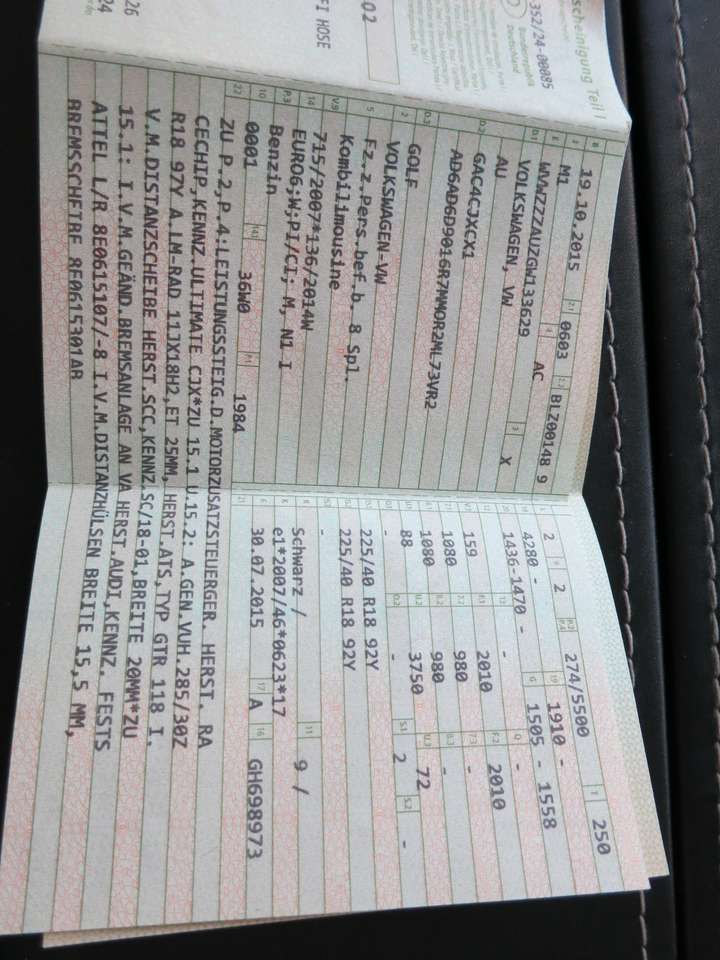 scheinigung Teil I
352/24-00085
Bundesrepublik
Deutschland
02
FI HOSE
26
24
B 19.10.2015 2.1 0603 2.2 BLZ00148 9
J M1 4 AC
E WVWZZZAUZGW133629 3 X
D.1 VOLKSWAGEN, VW
AU
D.2 GAC4CJXCX1
AD6AD6D9016R7MMOR2ML73VR2
D.3 GOLF
2 VOLKSWAGEN-VW
5 Fz.z.Pers.bef.b. 8 Spl.
Kombilimousine
V.9 715/2007*136/2014W
14 EURO6;W;PI/CI; M, N1 I
P.3 Benzin
10 0001 14.1 36W0 P.1 1984
22 ZU P.2,P.4:LEISTUNGSSTEIG.D.MOTORZUSATZSTEUERGER. HERST. RA
CECHIP,KENNZ.ULTIMATE CJX*ZU 15.1 U.15.2: A.GEN.VUH.285/30Z
R18 97Y A.LM-RAD 11JX18H2,ET 25MM, HERST.ATS,TYP GTR 118 I.
V.M.DISTANZSCHEIBE HERST.SCC,KENNZ.SC/18-01,BREITE 20MM*ZU
15.1: I.V.M.GEÄND.BREMSANLAGE AN VA HERST.AUDI,KENNZ. FESTS
ATTEL L/R 8E0615107/-8 I.V.M.DISTANZHÜLSEN BREITE 15,5 MM,
BREMSSCHEIBE 8E0615301AB
L 2 9 2 P.2 P.4 274/5500 T 250
18 4280 - 19 1910 -
20 1436-1470 - G 1505 - 1558
12 - Q -
V.7 159 F.1 2010 F.2 2010
7.1 1080 7.2 980 7.3 -
8.1 1080 8.2 980 8.3 -
U.1 88 U.2 3750 U.3 72
O.1 - O.2 - S.1 2 S.2 -
15.1 225/40 R18 92Y
15.2 225/40 R18 92Y
15.3 -
R Schwarz / 11 9 /
K e1*2007/46*0623*17
6 30.07.2015 17 A 16 GH698973
21